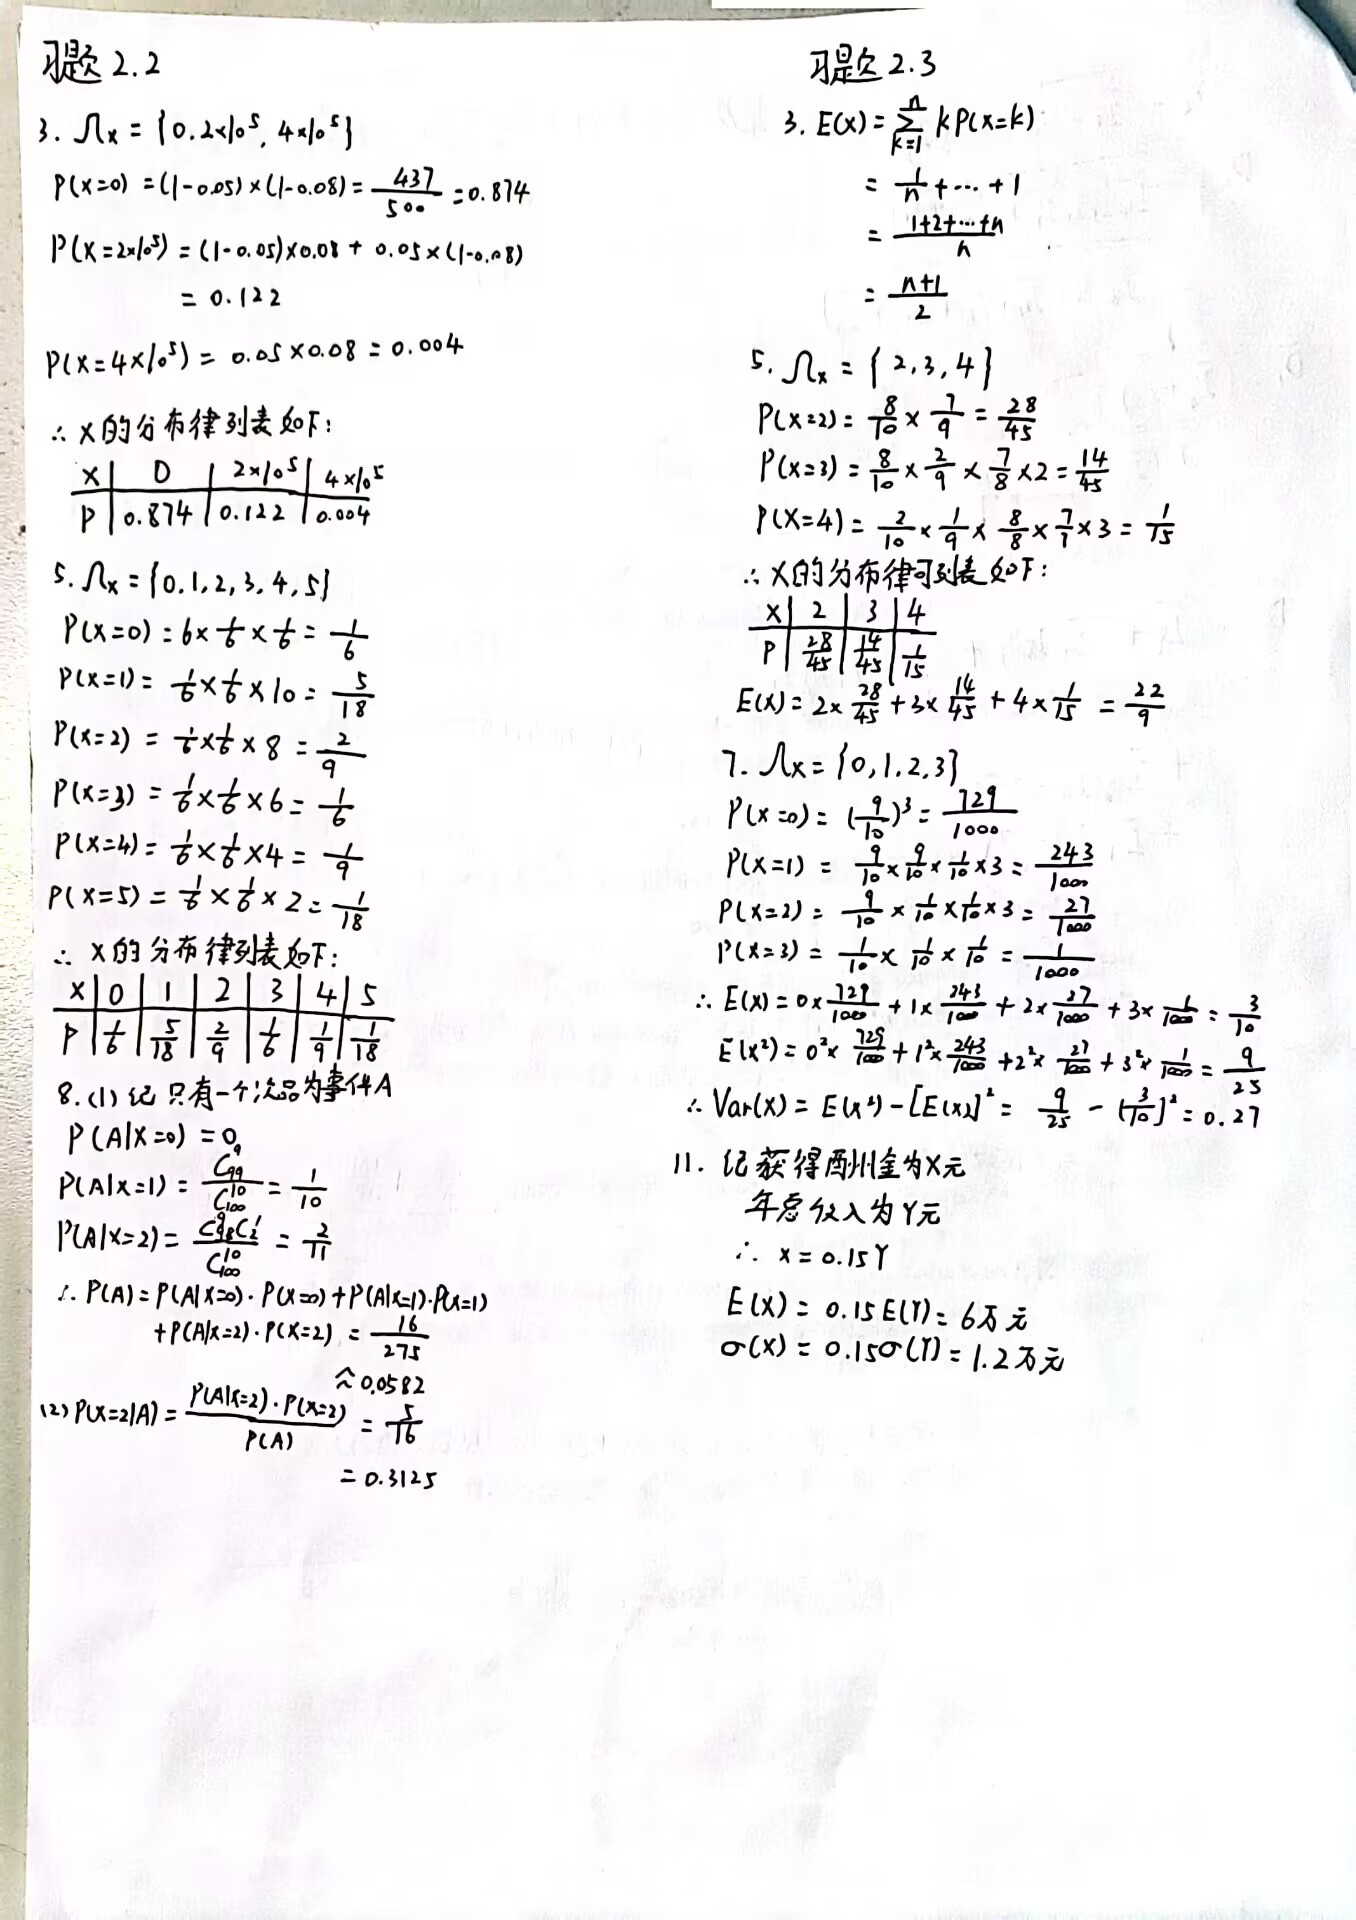 习题 2.2
3. Ωx = {0.2×10⁵, 4×10⁵}
P(X=0) = (1-0.05)×(1-0.08) = 437/500 = 0.874
P(X=2×10⁵) = (1-0.05)×0.08 + 0.05×(1-0.08)
= 0.122
P(X=4×10⁵) = 0.05×0.08 = 0.004
∴ X的分布律列表如下:
X | 0 | 2×10⁵ | 4×10⁵
P | 0.874 | 0.122 | 0.004
5. Ωx = {0,1,2,3,4,5}
P(X=0) = 6×1/6×1/6 = 1/6
P(X=1) = 1/6×1/6×10 = 5/18
P(X=2) = 1/6×1/6×8 = 2/9
P(X=3) = 1/6×1/6×6 = 1/6
P(X=4) = 1/6×1/6×4 = 1/9
P(X=5) = 1/6×1/6×2 = 1/18
∴ X的分布律列表如下:
X | 0 | 1 | 2 | 3 | 4 | 5
P | 1/6 | 5/18 | 2/9 | 1/6 | 1/9 | 1/18
8. (1) 记只有一个次品为事件A
P(A|X=0) = 0
P(A|X=1) = C₉₉⁹/C₁₀₀¹⁰ = 1/10
P(A|X=2) = C₉₈⁹C₂¹/C₁₀₀¹⁰ = 2/11
∴ P(A) = P(A|X=0)·P(X=0) + P(A|X=1)·P(X=1)
+ P(A|X=2)·P(X=2) = 16/275
≈ 0.0582
(2) P(X=2|A) = P(A|X=2)·P(X=2)/P(A) = 5/16
= 0.3125
习题 2.3
3. E(X) = ∑ₖ₌₁ⁿ kP(X=k)
= 1/n + ⋯ + 1
= (1+2+⋯+n)/n
= (n+1)/2
5. Ωx = {2,3,4}
P(X=2) = 8/10 × 7/9 = 28/45
P(X=3) = 8/10 × 2/9 × 7/8 × 2 = 14/45
P(X=4) = 2/10 × 1/9 × 8/8 × 7/7 × 3 = 1/15
∴ X的分布律可列表如下:
X | 2 | 3 | 4
P | 28/45 | 14/45 | 1/15
E(X) = 2×28/45 + 3×14/45 + 4×1/15 = 22/9
7. Ωx = {0,1,2,3}
P(X=0) = (9/10)³ = 729/1000
P(X=1) = 9/10×9/10×1/10×3 = 243/1000
P(X=2) = 9/10×1/10×1/10×3 = 27/1000
P(X=3) = 1/10×1/10×1/10 = 1/1000
∴ E(X) = 0×729/1000 + 1×243/1000 + 2×27/1000 + 3×1/1000 = 3/10
E(X²) = 0²×729/1000 + 1²×243/1000 + 2²×27/1000 + 3²×1/1000 = 9/25
∴ Var(X) = E(X²) - [E(X)]² = 9/25 - (3/10)² = 0.27
11. 记获得酬州金为X元
年总收入为Y元
∴ X = 0.15Y
E(X) = 0.15E(Y) = 6万元
σ(X) = 0.15σ(Y) = 1.2万元